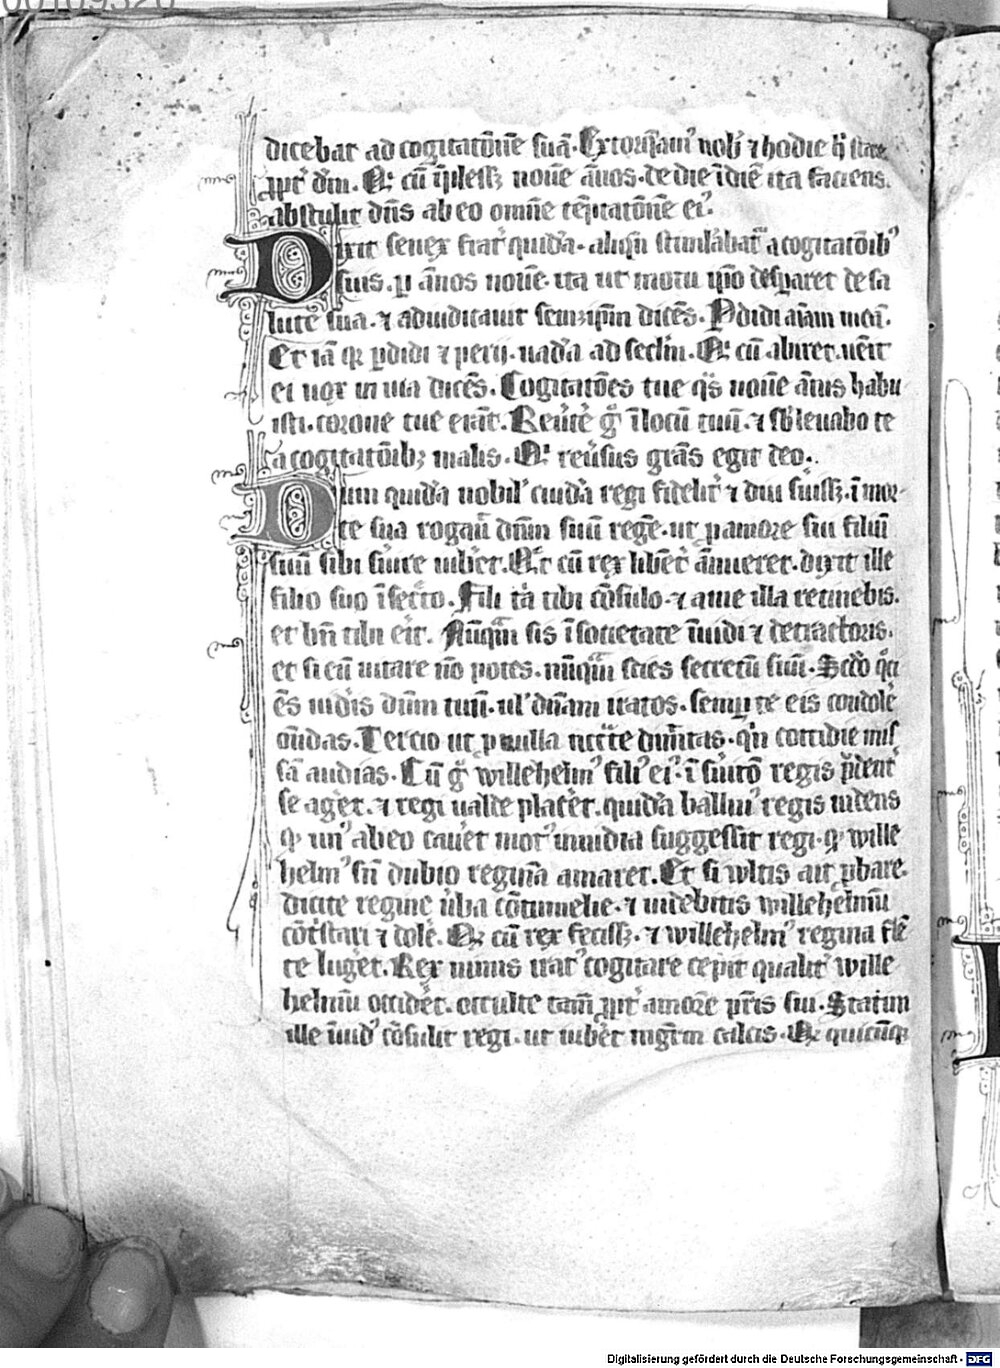 00109320
dicebat ad cogitatōnē suā. Extorq̄am᷒ nob̄ ⁊ hodie
ꝓpt᷑ dm̄. cū īpless₃ nouē ānos. de die ī diē ita faciens.
abstulit dn̄s ab eo omnē tēptatōnē ei᷒.
Dixit senex frat᷑ quidā. stīulabat᷑ a cogitatōib᷒
suis. p ānos nouē. ita ut motu ip̄o desꝑaret de sa
lute sua. ⁊ adiudicauit semꝫip̄m dicēs. Pdidi aīam meā.
Et iā qꝫ ꝑdidi ⁊ perij. uadā ad seclm̄. cū abiret. uēit
ei uox in uia dicēs. Cogitatōes tue qͣs nouē ānis habu
isti. corone tue erāt. Reu᷑te᷑ g᷑ ī locū tuū. ⁊ sb̄leuabo te
a cogitatōibꝫ malis. reu᷑sus grās egit deo.
Dum quidā nobil᷒ cuidā regi fidelit᷑ ⁊ diu s᷑uissꝫ. ī mor-
te sua rogauit dn̄m suū regē. ut p amore sui filiū
suū sibi s᷑uire iub᷑et. cū rex libēt᷑ ānueret. dixit ille
filio suo ī sec᷑to. Fili tͣa tibi cōsulo. ⁊ a me illa retinebis.
et bn̄ tibi erit. Nūqͣm sis ī societate īuidi ⁊ detractoris.
et si cū uitare nō potes. nūqͣm scies secretū suū. Scd̄o
ēs uid᷑is dn̄m tuū. ul᷒ dn̄am iratos. semꝑ te eis condolē᷑
on̄das. Tercio ut p nulla dim̄tas. qn̄ cottidie mis
sā audias. Cū g᷑ willehelm᷒ fili᷒ ei᷒. ī s᷑uitō regis pͥdent᷑
se ag᷑et. ⁊ regi ualde plac᷑et. quidā balliu᷒ regis uidens
qꝫ un᷒ ab eo cau᷑et mot᷒ inuidia suggessit regi. qꝫ wille
helm᷒ sn̄ dubio reginā amaret. Et si wltis ait ꝓbare.
dicite regine u᷑ba cōtumelie. ⁊ uidebitis willehelmū
cōt᷑stari ⁊ dolē᷑. cū rex fecissꝫ. ⁊ willehelm᷒ regina flē
te lug᷑et. Rex nimis irat᷒ cogitare cepit qualit᷑ wille
helmū occid᷑et. occulte tam̄ ꝓpt᷑ amorē pr̄is sui. Statim
ille īuid᷒ cōsulit regi. ut iub᷑et mg̅m calcis. quicūqꝫ
Digitalisierung gefördert durch die Deutsche Forschungsgemeinschaft - DFG